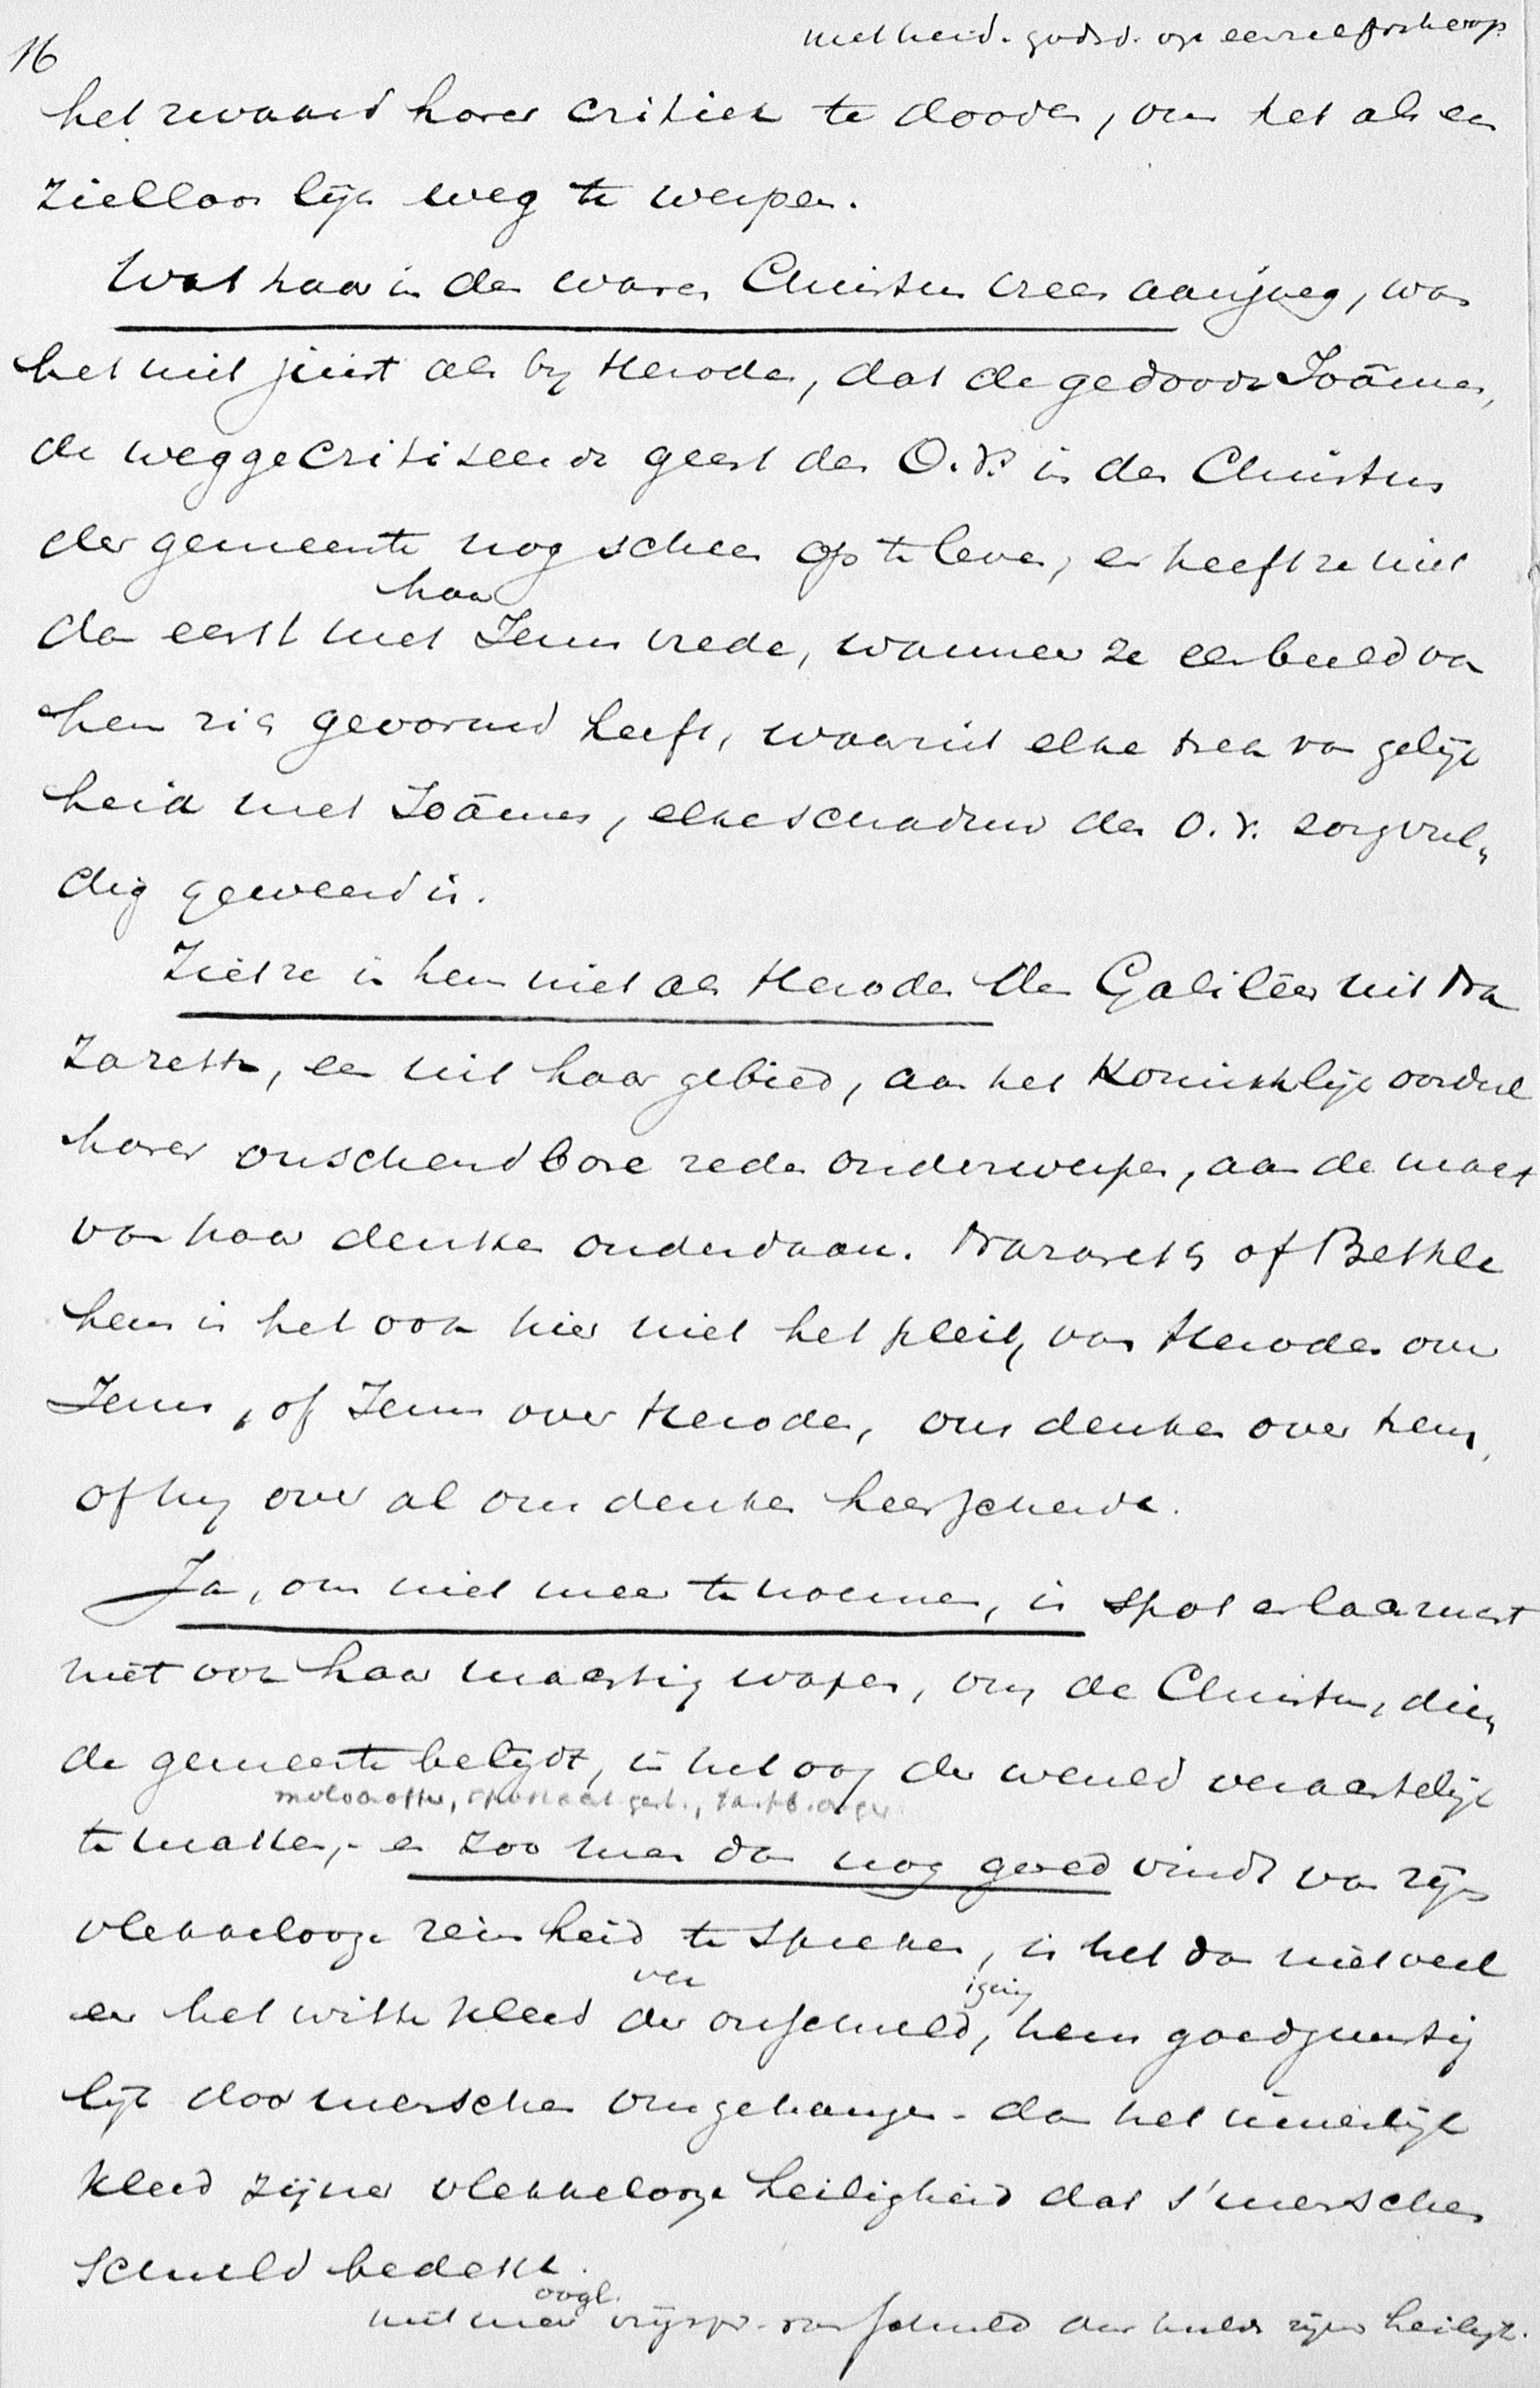 16
met heid. godsd. op een
het zwaard harer critiek te dooden, om het als een
zielloos lijk weg te werpen.
Wat haar in den waren Christus vrees aanjoeg, was
het niet juist als by Herodes, dat de gedoode Joännes,
de weggecritiseerde geest des O. V. in den Christus
der gemeente nog scheen op te leven, en heeft ze niet
haar
dan eerst met Jezus vrede, wanneer ze een beeld van
hem zich gevormd heeft, waaruit elke trek van gelijk
heid met Joännes, elke schaduw des O. V. zorgvul„
dig geweerd is.
Ziet ze in hem niet als Herodes den Galileër uit Na
zareth, een uit haar gebied, aan het Koninklijk oordeel
harer onschendbare rede onderworpen, aan de macht
van haar denken onderdaan. Nazareth of Bethle
hem is het ook hier niet het pleit, van Herodes over
Jezus, of Jezus over Herodes, ons denken over hem,
of hy over al ons denken heerschende.
Ja, om niet meer te noemen, is spot en laster niet
niet ook haar machtig wapen, om de Christus, dien
de gemeente belydt, in het oog der wereld verachtelijk
molochoffer,
te maken,- en zoo men dan nog goed vindt van zijn
vlekkelooze reinheid te spreken, is het dan niet veel
ver iging
eer het witte kleed der onschuld, hem goedgunstig
lijk door menschen omgehangen - dan het innerlijk
kleed zijner vlekkelooze heiligheid dat 's menschen
schuld bedekt.
oogl.
niet meer vrijspr. van schuld dan hulde zijner heiligh.